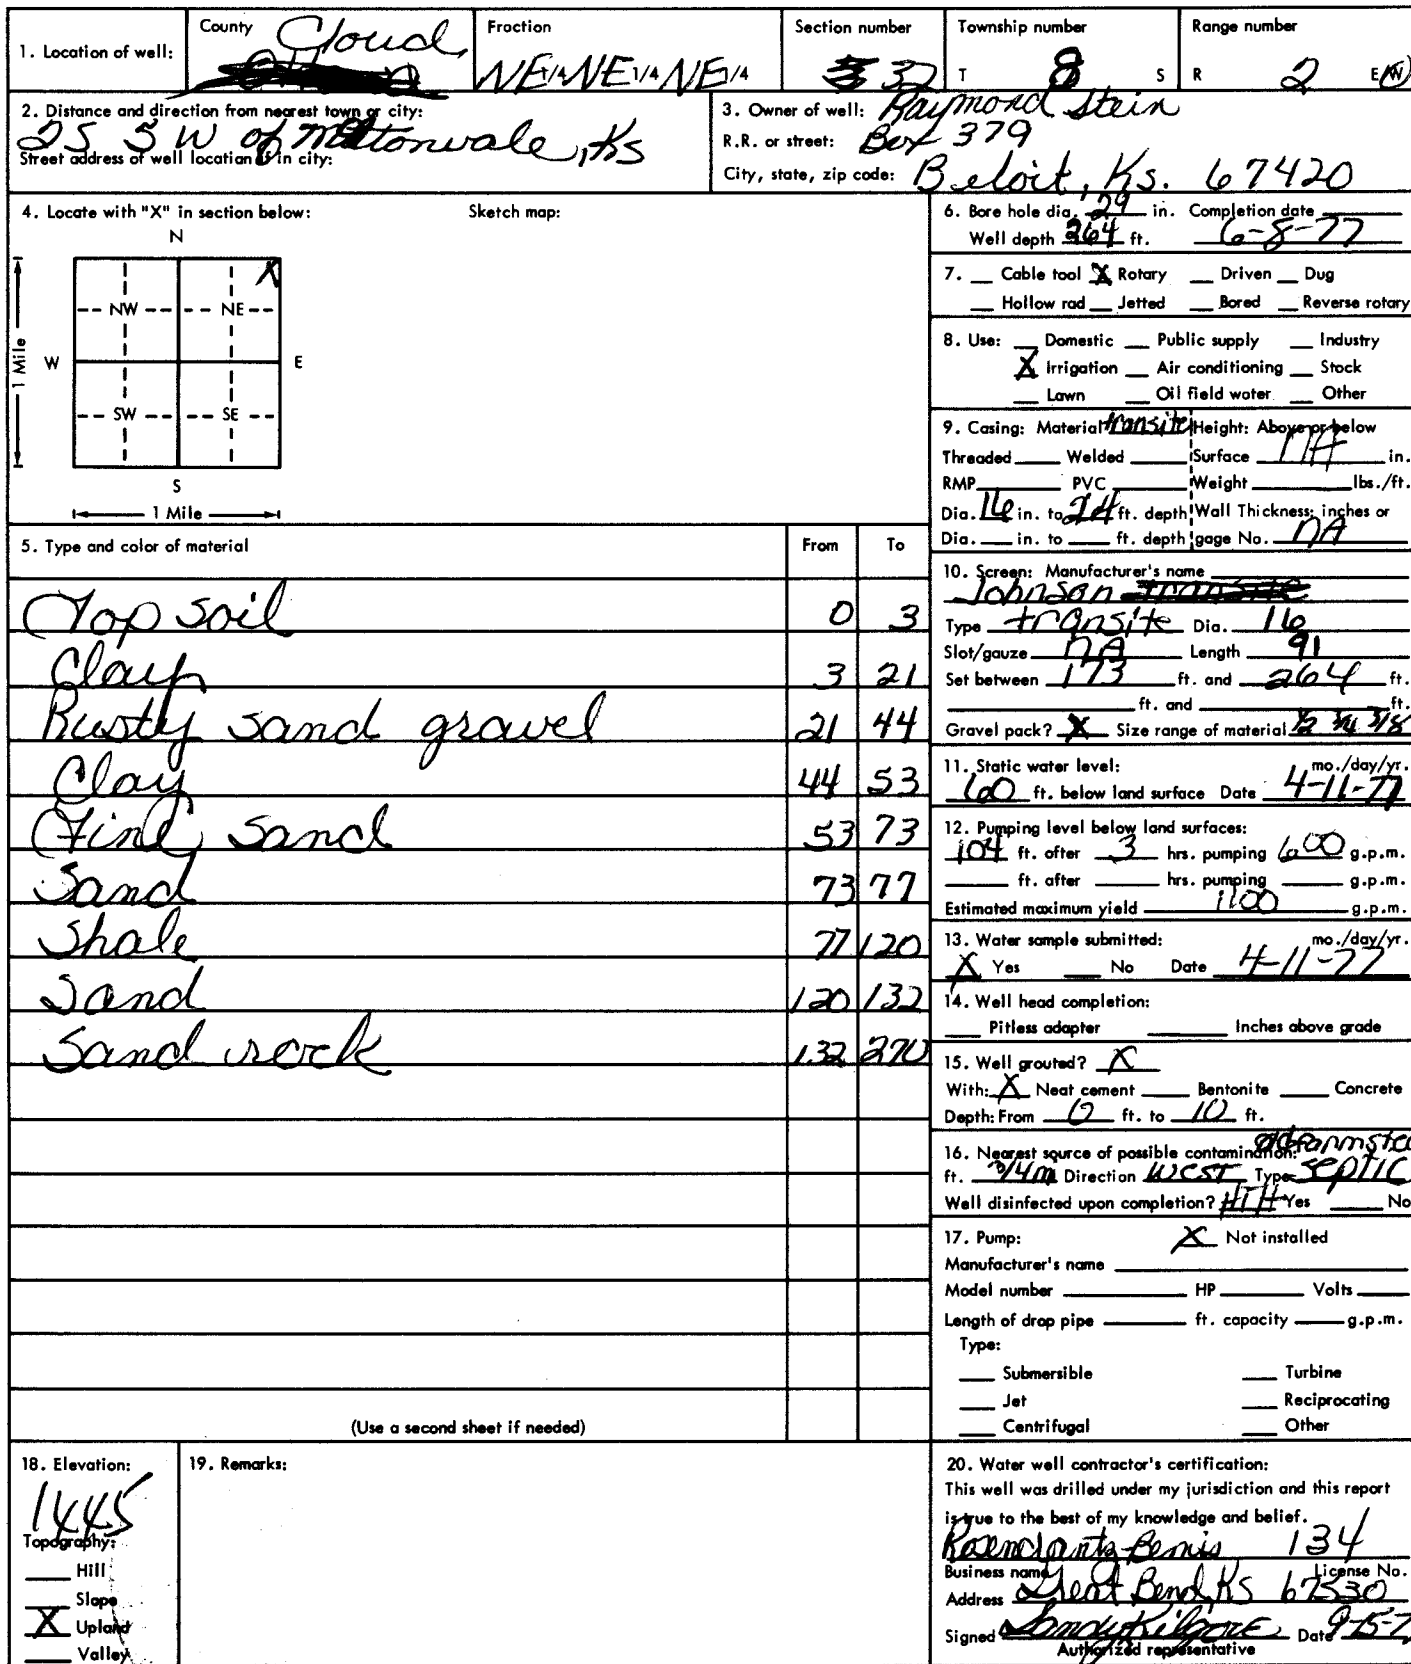 1. Location of well: County Cloud Fraction NE 1/4 NE 1/4 NE 1/4 Section number 32 Township number T 8 S Range number R 2 E W
2. Distance and direction from nearest town or city:
2S 5 W of Miltonvale, Ks
Street address of well location if in city:
3. Owner of well: Raymond Stein
R.R. or street: Box 379
City, state, zip code: Beloit, Ks. 67420
4. Locate with "X" in section below: Sketch map:
N
X
NW NE
1 Mile W E
SW SE
S
1 Mile
5. Type and color of material From To
Top soil 0 3
Clay 3 21
Rusty sand gravel 21 44
Clay 44 53
Fine sand 53 73
Sand 73 77
Shale 77 120
Sand 120 132
Sand rock 132 270
(Use a second sheet if needed)
6. Bore hole dia. 29 in. Completion date
Well depth 264 ft. 6-8-77
7. Cable tool X Rotary Driven Dug
Hollow rad Jetted Bored Reverse rotary
8. Use: Domestic Public supply Industry
X Irrigation Air conditioning Stock
Lawn Oil field water Other
9. Casing: Material transite Height: Above or below
Threaded Welded Surface in.
RMP PVC Weight lbs./ft.
Dia. 16 in. to ft. depth Wall Thickness: inches or
Dia. in. to ft. depth gage No. NA
10. Screen: Manufacturer's name
Johnson
Type transite Dia. 16
Slot/gauze NA Length 91
Set between 173 ft. and 264 ft.
ft. and ft.
Gravel pack? X Size range of material
11. Static water level: mo./day/yr.
60 ft. below land surface Date 4-11-77
12. Pumping level below land surfaces:
104 ft. after 3 hrs. pumping 600 g.p.m.
ft. after hrs. pumping g.p.m.
Estimated maximum yield 1100 g.p.m.
13. Water sample submitted: mo./day/yr.
X Yes No Date 4-11-77
14. Well head completion:
Pitless adapter Inches above grade
15. Well grouted? X
With: X Neat cement Bentonite Concrete
Depth: From 0 ft. to 10 ft.
16. Nearest source of possible contamination:
ft. 3/4 m Direction West Type septic
Well disinfected upon completion? HTH Yes No
17. Pump: X Not installed
Manufacturer's name
Model number HP Volts
Length of drop pipe ft. capacity g.p.m.
Type:
Submersible Turbine
Jet Reciprocating
Centrifugal Other
18. Elevation:
1445
Topography:
Hill
Slope
X Upland
Valley
19. Remarks:
20. Water well contractor's certification:
This well was drilled under my jurisdiction and this report
is true to the best of my knowledge and belief.
Rosencrantz-Bemis 134
Business name License No.
Address Great Bend, KS 67530
Signed Sandy Kilgore Date 9-15-7
Authorized representative